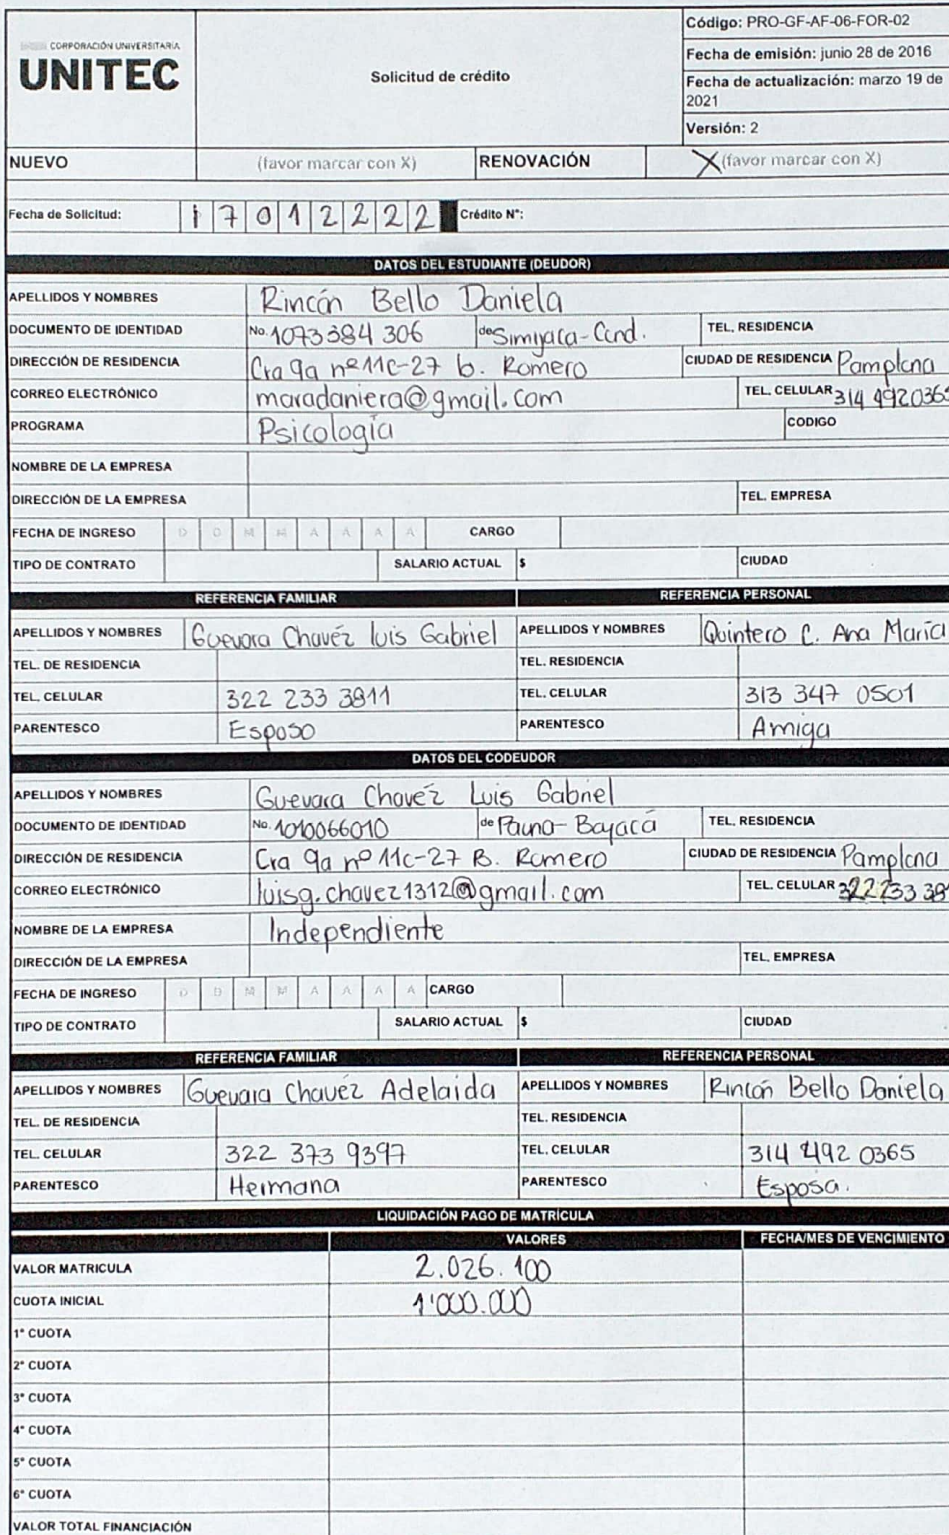 CORPORACIÓN UNIVERSITARIA
UNITEC
Solicitud de crédito
Código: PRO-GF-AF-06-FOR-02
Fecha de emisión: junio 28 de 2016
Fecha de actualización: marzo 19 de
2021
Versión: 2
NUEVO (favor marcar con X) RENOVACIÓN X (favor marcar con X)
Fecha de Solicitud: 1 7 0 1 2 2 2 2 Crédito N°:
DATOS DEL ESTUDIANTE (DEUDOR)
APELLIDOS Y NOMBRES Rincón Bello Daniela
DOCUMENTO DE IDENTIDAD No. 1073384 306 de Simijaca-Cund. TEL. RESIDENCIA
DIRECCIÓN DE RESIDENCIA Cra 9a nº 11C-27 b. Romero CIUDAD DE RESIDENCIA Pamplona
CORREO ELECTRÓNICO maradaniera@gmail.com TEL. CELULAR 314 4920365
PROGRAMA Psicología CODIGO
NOMBRE DE LA EMPRESA
DIRECCIÓN DE LA EMPRESA TEL. EMPRESA
FECHA DE INGRESO D D M M A A A A CARGO
TIPO DE CONTRATO SALARIO ACTUAL $ CIUDAD
REFERENCIA FAMILIAR REFERENCIA PERSONAL
APELLIDOS Y NOMBRES Guevara Chavéz luis Gabriel APELLIDOS Y NOMBRES Quintero C. Ana María
TEL. DE RESIDENCIA TEL. RESIDENCIA
TEL. CELULAR 322 233 3811 TEL. CELULAR 313 347 0501
PARENTESCO Esposo PARENTESCO Amiga
DATOS DEL CODEUDOR
APELLIDOS Y NOMBRES Guevara Chavéz Luis Gabriel
DOCUMENTO DE IDENTIDAD No. 1010066010 de Pauna-Boyacá TEL. RESIDENCIA
DIRECCIÓN DE RESIDENCIA Cra 9a nº 11C-27 B. Romero CIUDAD DE RESIDENCIA Pamplona
CORREO ELECTRÓNICO luisg.chavez1312@gmail.com TEL. CELULAR 322 233 38
NOMBRE DE LA EMPRESA Independiente
DIRECCIÓN DE LA EMPRESA TEL. EMPRESA
FECHA DE INGRESO D D M M A A A A CARGO
TIPO DE CONTRATO SALARIO ACTUAL $ CIUDAD
REFERENCIA FAMILIAR REFERENCIA PERSONAL
APELLIDOS Y NOMBRES Guevara Chavéz Adelaida APELLIDOS Y NOMBRES Rincón Bello Daniela
TEL. DE RESIDENCIA TEL. RESIDENCIA
TEL. CELULAR 322 373 9397 TEL. CELULAR 314 492 0365
PARENTESCO Hermana PARENTESCO Esposa.
LIQUIDACIÓN PAGO DE MATRÍCULA
VALORES FECHA/MES DE VENCIMIENTO
VALOR MATRICULA 2.026.100
CUOTA INICIAL 1'000.000
1° CUOTA
2° CUOTA
3° CUOTA
4° CUOTA
5° CUOTA
6° CUOTA
VALOR TOTAL FINANCIACIÓN